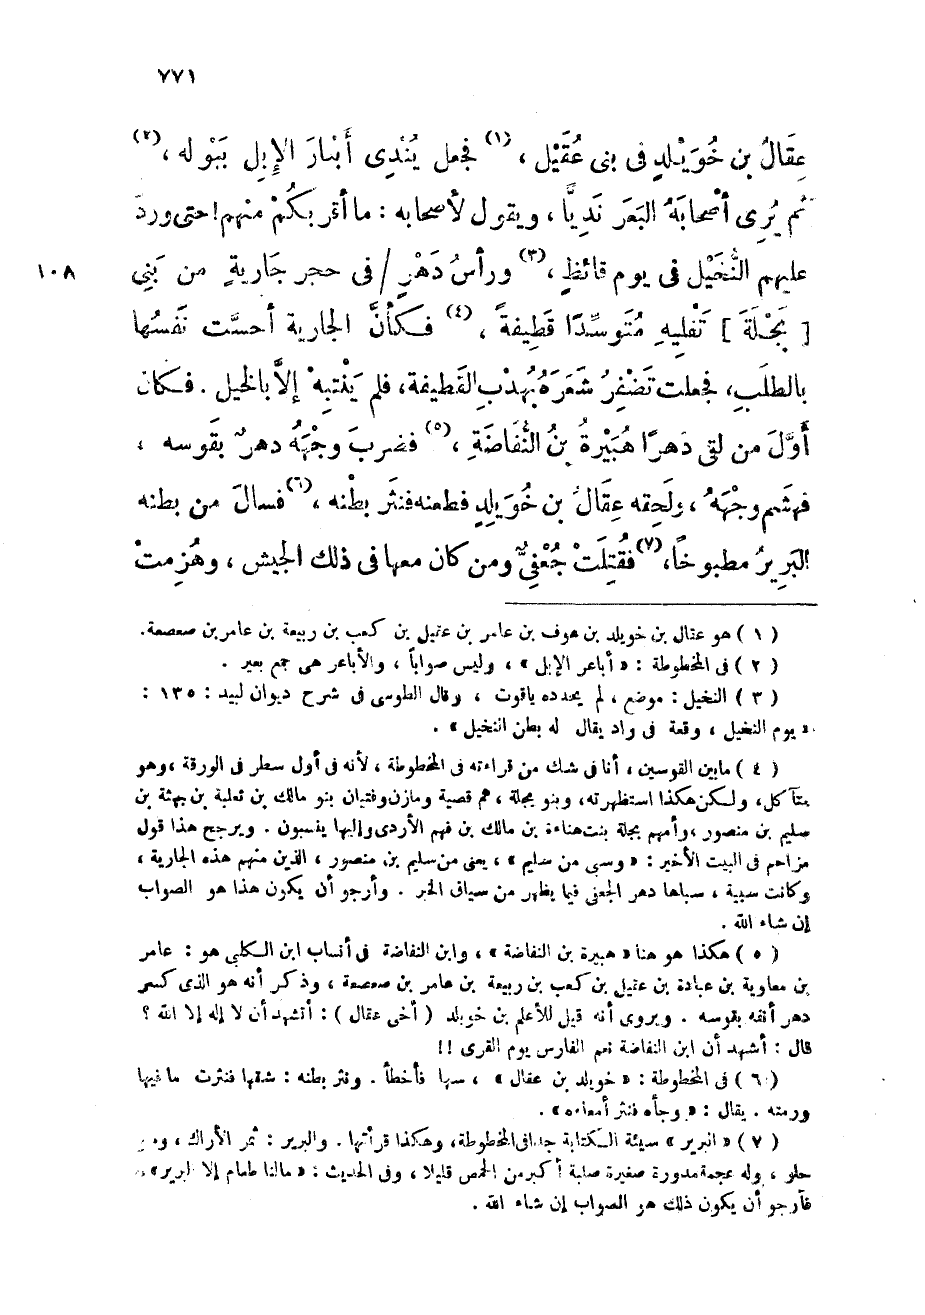 ٧٧١
عِقَالُ بن خُوَيْـلدٍ فى بنى عُقَيْل ، (١) فجعل يُنْدِى أَبْعَارَ الإِبِل بِبَوْله ، (٢)
ثم يُرِى أصْحابَهُ البَعَر نَدِيًّا ، ويقول لأصحابه : ما أقربكُمْ منهم ! حتى وردَ
عليهم النُّخَيْل فى يوم قائظٍ ، (٣) ورأسُ دَهْرٍ / فى حجر جَاريةٍ من بَنِى
١٠٨
[ بَجْلَةَ ] تَفْليهِ مُتَوسِّدًا قَطِيفةً ، (٤) فـكأنَّ الجارية أحسَّت نَفسُها
بالطلَبِ ، فجعلت تَضْفِرُ شَعَرَهُ بهُدْبِ القَطيفة ، فلم يَنْتبِهْ إلاَّ بالخيل . فـكان
أَوَّلَ من لقى دَهرًا هُبَيْرةُ بنُ النُّفَاضَةِ ، (٥) فضربَ وجْهَهُ دهرٌ بقَوسه ،
فهشم وجْهَهُ ، ولَحِقه عِقالُ بن خُوَيلِدٍ فطعنه فنثَر بطْنه ، (٦) فسالَ من بطنه
البَرِيرُ مطبوخًا ، (٧) فقُتِلَتْ جُعْفِىٌّ ومن كان معها فى ذلك الجيش ، وهُزِمتْ
( ١ ) هو عقال بن خويلد بن عوف بن عامر بن عقيل بن كعب بن ربيعة بن عامر بن صعصعة .
( ٢ ) فى المخطوطة : « أباعر الإبل » ، وليس صواباً ، والأباعر هى جمع بعير .
( ٣ ) النخيل : موضع ، لم يحدده ياقوت ، وقال الطوسى فى شرح ديوان لبيد : ١٣٥ :
« يوم النخيل ، وقعة فى واد يقال له بطن النخيل » .
( ٤ ) مابين القوسين ، أنا فى شك من قراءته فى المخطوطة ، لأنه فى أول سطر فى الورقة ، وهو
متآكل ، ولـكن هكذا استظهرته ، وبنو بجلة ، هم قصية ومازن وفتيان بنو مالك بن ثعلبة بن بهثة بن
سليم بن منصور ، وأمهم بجلة بنت هناءة بن مالك بن فهم الأزدى وإليها ينسبون . ويرجح هذا قول
مزاحم فى البيت الأخير : « وسبى من سليم » ، يعنى من سليم بن منصور ، الذين منهم هذه الجارية ،
وكانت سبية ، سباها دهر الجعفى فيما يظهر من سياق الخبر . وأرجو أن يكون هذا هو الصواب
إن شاء الله .
( ٥ ) هكذا هو هنا « هبيرة بن النفاضة » ، وابن النفاضة فى أنساب ابن الـكلبى هو : عامر
بن معاوية بن عبادة بن عقيل بن كعب بن ربيعة بن عامر بن صعصعة ، وذكر أنه هو الذى كسر
دهر أنفه بقوسه . ويروى أنه قيل للأعلم بن خويلد ( أخى عقال ) : أتشهد أن لا إله إلا الله ؟
قال : أشهد أن ابن النفاضة نعم الفارس يوم القرى !!
( ٦ ) فى المخطوطة : « خويلد بن عقال » ، سها فأخطأ . ونثر بطنه : شقها فنثرت ما فيها
ورمته . يقال : « وجأه فنثر أمعاءه » .
( ٧ ) « البرير » سيئة الـكتابة جدا فى المخطوطة ، وهكذا قرأتها . والبرير : ثمر الأراك ، وهو
حلو ، وله عجمة مدورة صغيرة صلبة أكبر من الحمص قليلا ، وفى الحديث : « مالنا طعام إلا البرير » ،
فأرجو أن يكون ذلك هو الصواب إن شاء الله .